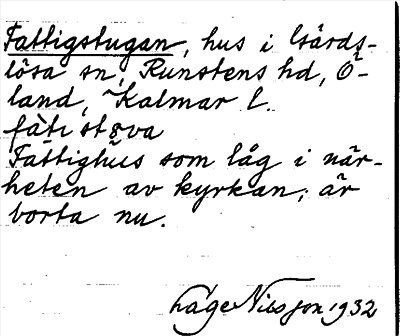 Fattigstugan, hus i Gärds-
lösa sn, Runstens hd, Ö-
land, Kalmar l.
fàti støva
Fattighus som låg i när-
heten av kyrkan; är
borta nu.
Lage Nilsson 1932